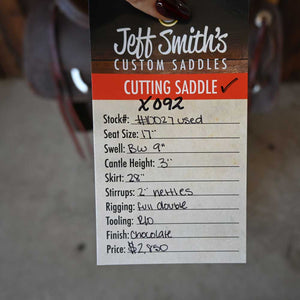 Jeff Smith's
CUSTOM SADDLES
CUTTING SADDLE ✓
X092
Stock#: #10027 used
Seat Size: 17"
Swell: BW 9"
Cantle Height: 3"
Skirt: 28"
Stirrups: 2" nettles
Rigging: full double
Tooling: R/O
Finish: Chocolate
Price: $2,850